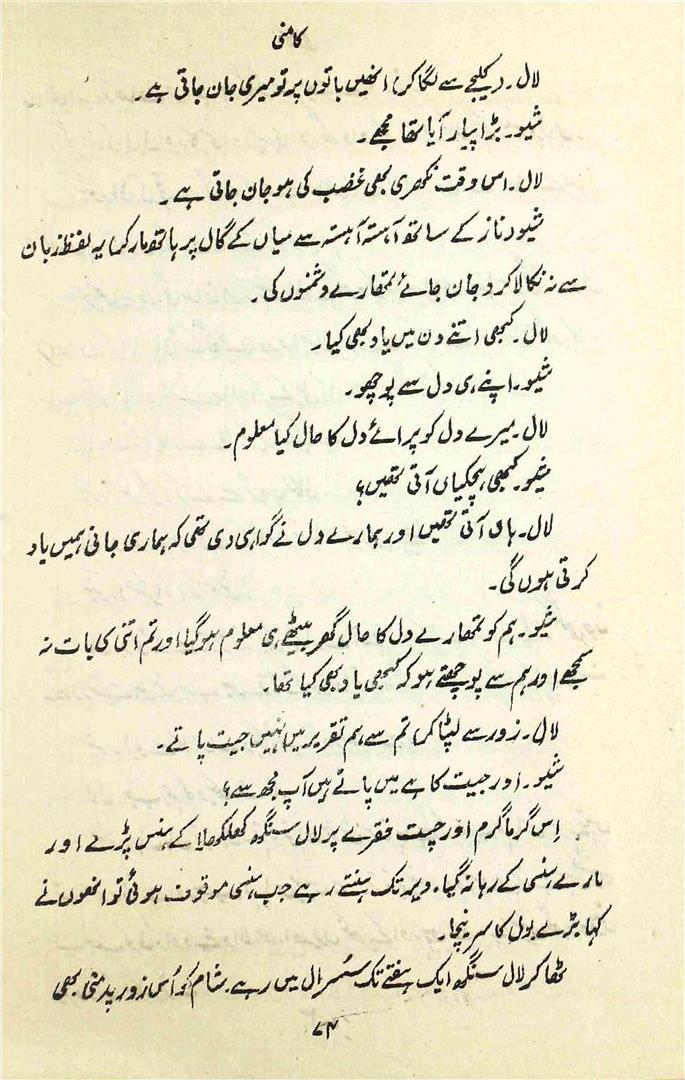 کامنی
لال۔ (کلیجے سے لگا کر) انھیں باتوں پر تو میری جان جاتی ہے۔
شیو۔ بڑا پیار آیا تھا مجھے۔
لال۔ اس وقت نکھری بھی غضب کی ہو جان جاتی ہے۔
شیو (ناز کے ساتھ آہستہ آہستہ سے میاں کے گال پر ہاتھ مار کر) یہ لفظ زبان
سے نہ نکالا کرو جان جائے تمھارے دشمنوں کی۔
لال۔ کبھی اتنے دن میں یاد بھی کیا۔
شیو۔ اپنے ہی دل سے پوچھو۔
لال۔ میرے دل کو پرائے دل کا حال کیا معلوم۔
شیو۔ کبھی ہچکیاں آتی تھیں؟
لال۔ ہاں آتی تھیں اور ہمارے دل نے گواہی دی تھی کہ ہماری جانی ہمیں یاد
کرتی ہوں گی۔
شیو۔ ہم کو تمھارے دل کا حال گھر بیٹھے ہی معلوم ہو گیا اور تم اتنی سی بات نہ
سمجھے اور ہم سے پوچھتے ہو کہ کبھی یاد بھی کیا تھا۔
لال۔ (زور سے لپٹا کر) تم سے ہم تقریر میں نہیں جیت پاتے۔
شیو۔ اور جیت کاہے میں پاتے ہیں آپ مجھ سے؟
اِس گرما گرم اور چست فقرے پر لال سنگھ کھلکھلا کے ہنس پڑے اور
مارے ہنسی کے رہا نہ گیا۔ دیر تک ہنستے رہے جب ہنسی موقوف ہوئی تو انھوں نے
کہا بڑے بول کا سر نیچا۔
ٹھاکر لال سنگھ ایک ہفتے تک سُسرال میں رہے۔ شام کو اُس زور پدمنی بھی
۷۴